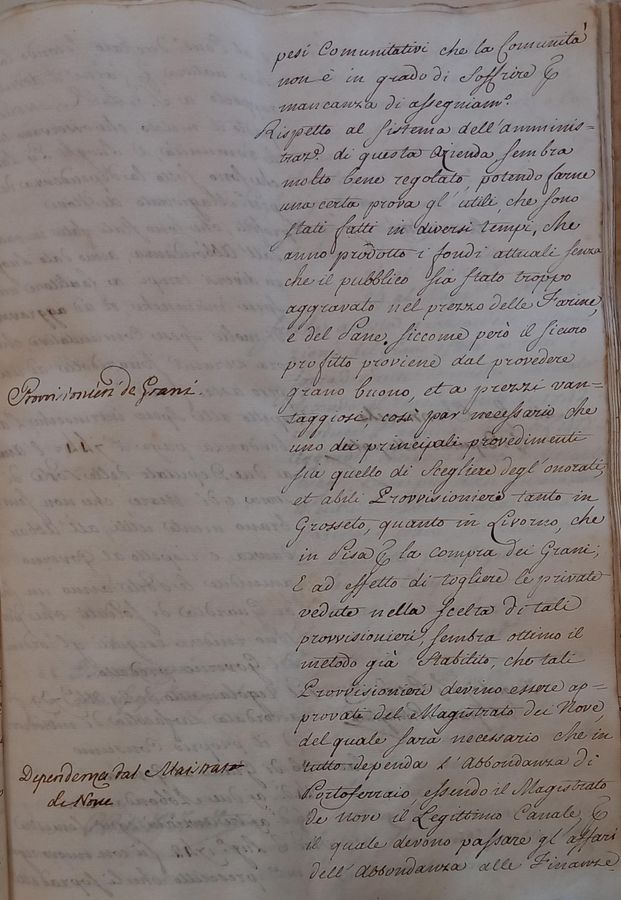 pesi Comunitativi che la Comunità
non è in grado di Soffrire &
mancanza di assegniam.º
Rispetto al sistema dell'amminis=
traz.ᵉ di questa Azienda sembra
molto bene regolato, potendo farne
una certa prova gl'utili, che sono
stati fatti in diversi tempi, che
anno prodotto i fondi attuali senza
che il pubblico sia stato troppo
aggravato nel prezzo delle Farine,
e del Pane. siccome però il sicuro
profitto proviene dal provedere
Provvisionieri de Grani.
grano buono, et a prezzi van=
taggiosi, così par necessario che
uno dei principali provedimenti
sia quello di Scegliere degl'onorati,
et abili Provvisionieri tanto in
Grosseto, quanto in Livorno, che
in Pisa & la compra dei Grani,
E ad effetto di togliere le private
vedute nella scelta di tali
provvisionieri, sembra ottimo il
metodo già stabilito, che tali
Provvisionieri devino essere ap=
provati del Magistrato dei Nove,
del quale sarà necessario che in
Dipendenza dal Magistrato
de Nove
tutto dependa l'Abbondanza di
Portoferraio essendo il Magistrato
de nove il Legittimo Canale, &
il quale devono passare gl'affari
dell'Abbondanza alle Finanze